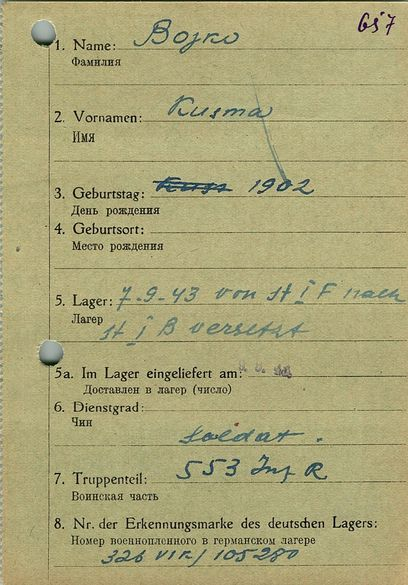 657
1. Name: Bojko
Фамилия
2. Vornamen: Kusma
Имя
3. Geburtstag: 1902
День рождения
4. Geburtsort:
Место рождения
5. Lager: 7-9-43 von St I F nach
Лагер
St I B versetzt
5a. Im Lager eingeliefert am:
Доставлен в лагер (число)
6. Dienstgrad:
Чин
Soldat.
7. Truppenteil: 553 Inf R
Воинская часть
8. Nr. der Erkennungsmarke des deutschen Lagers:
Номер военнопленного в германском лагере
326 VIK/105280